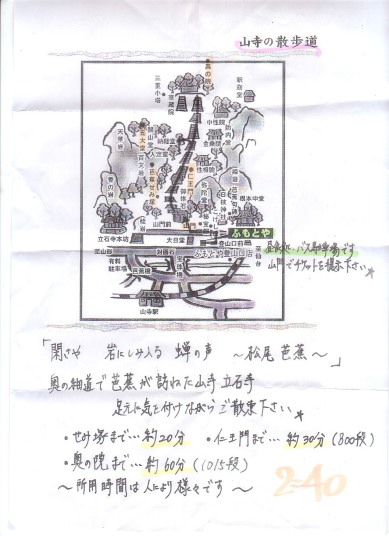 山寺の散歩道
奥の院
三重小塔
華蔵院
新庭堂
中性院
金乗院
胎内堂
天華岩
五大堂
開山堂
納経堂
入定窟
性相院
仁王門
せみ塚
弥陀洞
御休石
山門
山門前
日枝神社
根本中堂
立石寺本坊
大日堂
登山口前
ふもとや
有料
駐車場
対面石
芭蕉橋
ふもとや登山口店
至仙台
山寺駅
バス駐車場です
山門でチケットを提示下さい
「閑さや 岩にしみ入る 蝉の声 ～松尾芭蕉～」
奥の細道で芭蕉が訪ねた山寺 立石寺
足元に気を付けながらご散策下さい
・せみ塚まで…約20分 ・仁王門まで…約30分(800段)
・奥の院まで…約60分(1015段)
～所用時間は人により様々です～
2:40